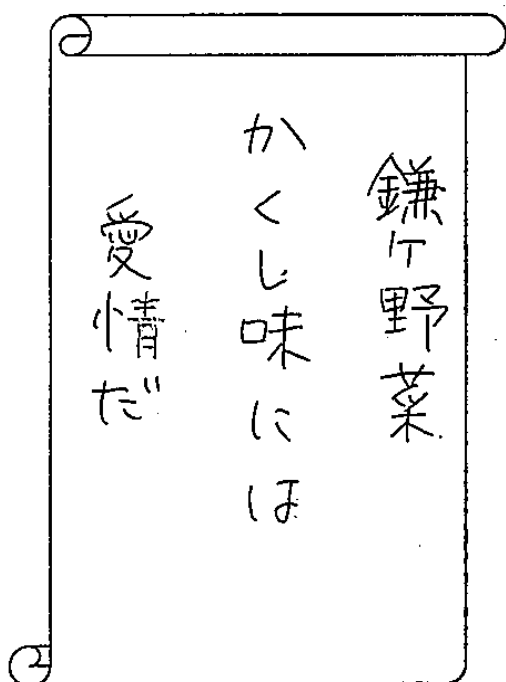 鎌ケ野菜
かくし味には
愛情だ